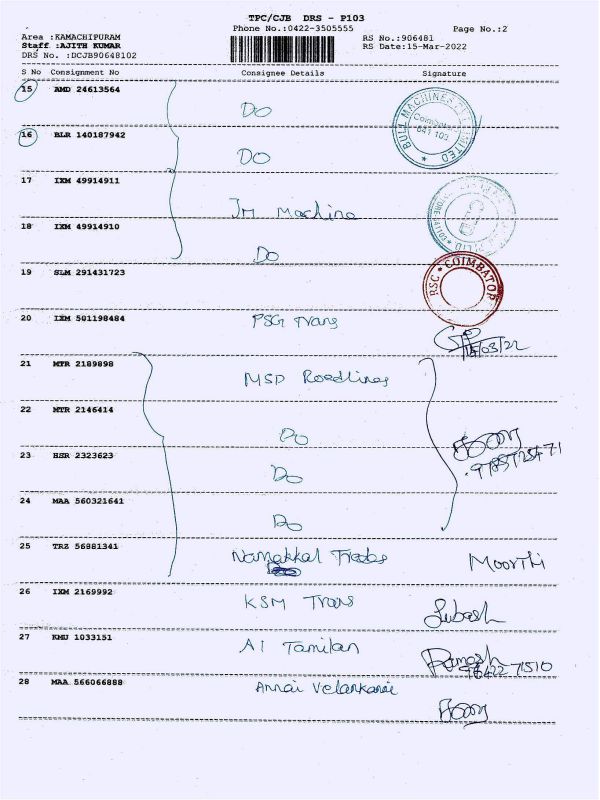 TPC/CJB DRS - P103
Phone No.:0422-3505555 Page No.:2
Area :KAMACHIPURAM RS No.:906481
Staff :AJITH KUMAR RS Date:15-Mar-2022
DRS No. :DCJB90648102
S No Consignment No Consignee Details Signature
15 AMD 24613564 DO
BULL MACHINES LIMITED
Coimbatore
641 103
16 BLR 140187942 DO
17 IXM 49914911 JM Machine
18 IXM 49914910 Do
19 SLM 291431723 RSC * COIMBATOR
20 IXM 501198484 PSG Trans
15/03/22
21 MTR 2189898 MSD Roadlines
22 MTR 2146414 Do
23 HSR 2323623 Do
24 MAA 560321641 Do
25 TRZ 56981341 Namakkal Trades Moorthi
26 IXM 2169992 KSM Trans Subash
27 KMU 1033151 AI Tamilan Ramesh
28 MAA 566066888 Annai Velankanni